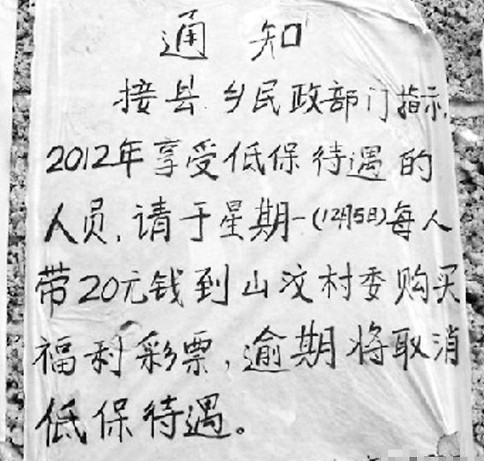 通知
接县.乡民政部门指示,
2012年享受低保待遇的
人员,请于星期一(12月5日)每人
带20元钱到山汶村委购买
福利彩票,逾期将取消
低保待遇。